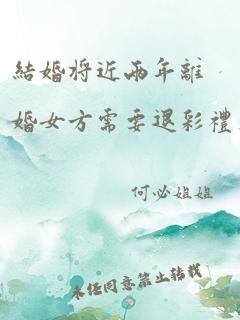 結婚將近兩年離
婚女方需要退彩禮
何必姐姐
未经同意禁止转载